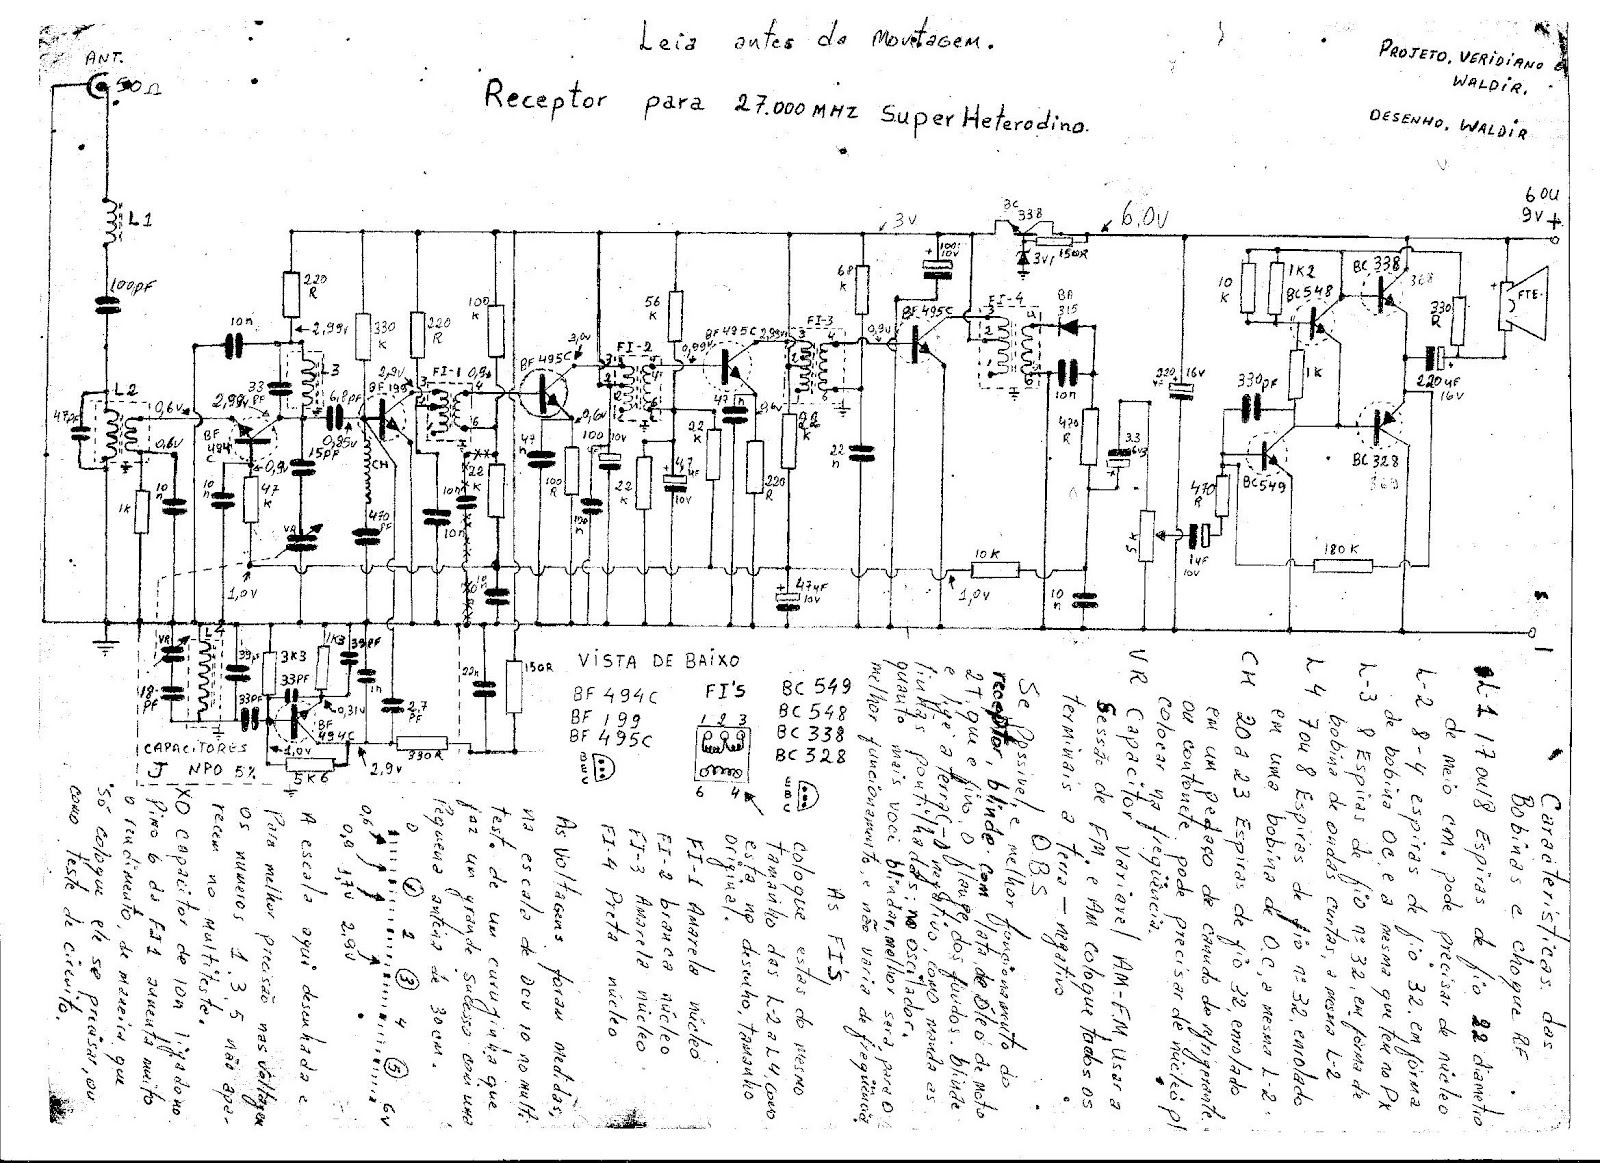 Leia antes da Montagem.
Receptor para 27.000 MHZ Super Heterodino.
PROJETO, VERIDIANO
WALDIR.
DESENHO, WALDIR
ANT.
50Ω
L1
100pF
L2
47pF
0,6v
0,6v
1K
10n
10n
10n
220
R
2,99v
33
PF
L3
2,98v
BF
494
C
0,9v
47
K
15pF
6,8pF
0,85v
VR
1,0v
330
K
2,9v
BF 199
CH
470
PF
220
R
FI-1
0,9v
3
4
6
100
K
10n
10n
22
K
10
n
BF 495C
3,0v
0,6v
47
n
100
R
100
10v
100
n
FI-2
22
K
56
K
0,99v
4,7
10v
22
K
BF 495C
2,99v
47
n
0,6v
220
R
FI-3
22
K
47uF
10v
68
K
0,9v
22
n
BF 495C
3v
100
10v
BC
338
3V1
150R
6,0v
FI-4
BA
315
10n
470
R
3.3
10K
1,0v
10
n
K5
220
16v
1uF
10v
470
R
330pF
BC549
10
K
1K2
BC548
1K
BC 338
368
330
R
FTE.
6 OU
9V +
220uF
16V
BC 328
369
180K
VR
18
PF
L4
39pF
33PF
3K3
33PF
1K3
39pF
0,31v
BF
494C
1,0v
5K6
1n
2,7
PF
2,9v
330R
22n
150R
CAPACITORES
J NPO 5%
VISTA DE BAIXO
BF 494C
BF 199
BF 495C
FI'S
1 2 3
6 4
BC 549
BC 548
BC 338
BC 328
Características das
Bobinas e choque RF.
L-1 17 ou 18 Espiras de fio 22 diametro
de meio cm. pode precisar de núcleo
L-2 8-4 espiras de fio 32. em fôrma
de bobina Oc, e a mesma que tem no Px
L-3 8 Espiras de fio nº 32, em fôrma de
bobina de ondas curtas, a mesma L-2
L4 7 ou 8 Espiras de fio nº 32, enrolado
em uma bobina de O.c a mesma L-2.
CH 20 a 23 Espiras de fio 32, enrolado
em um pedaço de canudo de refrigerante,
ou cotonete, pode precisar de núcleo p/
colocar na freqüência.
VR Capacitor variável AM-FM, Usar a
Sessão de FM, e Am coloque todos os
terminais a terra - negativo
OBS
Se Possivel, e melhor funcionamento do
receptor, blinde com lata de óleo de moto
2T, que e fino, o flange, dos fluidos. blinde
e ligue a terra (-) negativo, como manda as
linhas pontilhadas: no oscilador.
quanto mais você blindar, melhor sera para o
melhor funcionamento, e não varia de freqüência
As FI'S
coloque estas do mesmo
tamanho das L-2 a L4, como
esta no desenho, tamanho
Original.
FI-1 Amarela núcleo
FI-2 branca núcleo
FI-3 Amarela núcleo.
FI-4 Preta núcleo
As Voltagens foram medidas,
na escala de Dcv 10 no mult.
teste. de um curuginha que
faz um grande sucesso com uma
Pequena antena de 30cm.
0 1 2 3 4 5 6v
0,6 0,9 1,7v 2,9v
A escala aqui desenhada e
Para melhor precisão nas voltagem
os numeros 1, 3, 5 não apa-
recem no multiteste.
XO capacitor de 10n ligado no
Pino 6 da FI1 aumenta muito
o rendimento, de maneira que
só coloque ele se precisar, ou
como teste de circuito.